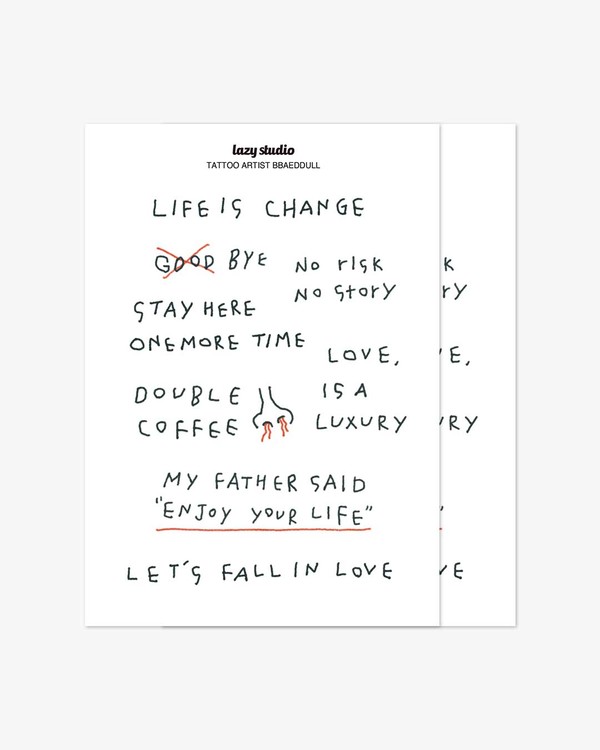 lazy studio
TATTOO ARTIST BBAEDDULL
LIFE IS CHANGE
GOOD BYE
No risk
No story
STAY HERE
ONE MORE TIME
LOVE,
IS A
LUXURY
DOUBLE
COFFEE
MY FATHER SAID
"ENJOY YOUR LIFE"
LET'S FALL IN LOVE
K
ry
E,
URY
"
VE